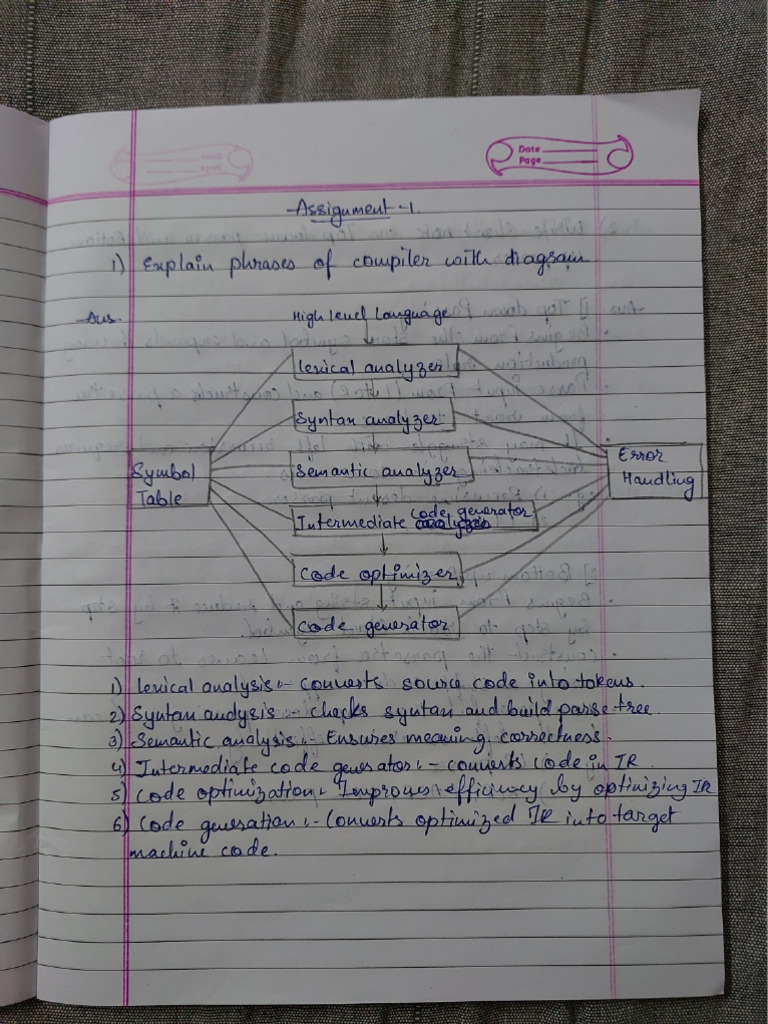 Date
Page
Assignment-1.
1) Explain phrases of compiler with diagram
Ans.
High level Language
Lexical analyzer
Syntan analyzer
Symbol
Table
Semantic analyzer
Error
Handling
Intermediate code generator
Code optimizer
Code generator
1) Lexical analysis :- Converts source code into tokens.
2) Syntan analysis :- checks syntan and build parse tree.
3) Semantic analysis :- Ensures meaning correctness.
4) Intermediate code generator :- converts code in IR.
5) Code optimization :- Improves efficiency by optimizing IR
6) Code generation :- Converts optimized IR into target
machine code.